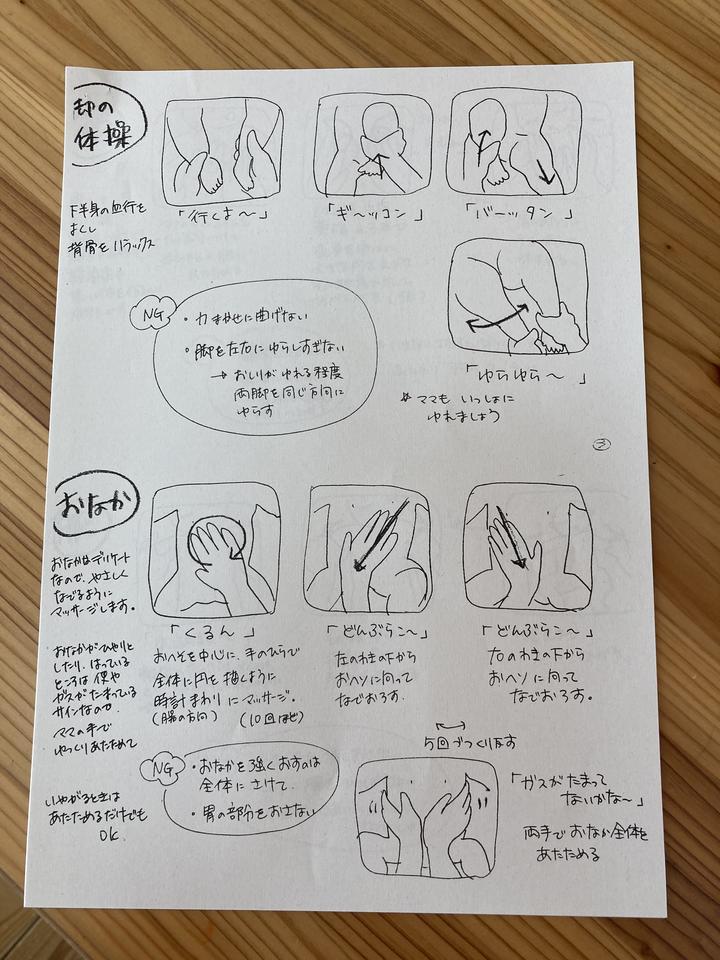 却の
体操
下半身の血行を
よくし
背骨をリラックス
「行くよ〜」
「ギ〜ッコン」
「バーッタン」
NG
・力まかせに曲げない
・脚を左右にゆらしすぎない
→ おしりがゆれる程度
両脚を同じ方向に
ゆらす
「ゆらゆら〜」
※ママもいっしょに
ゆれましょう
③
おなか
おなかはデリケート
なので、やさしく
なでるように
マッサージします。
おなかがひやりと
したり、はっている
ところは便や
ガスがたまっている
サインなので
ママの手で
ゆっくりあたためて
いやがるときは
あたためるだけでも
OK
「くるん」
おへそを中心に、手のひらで
全体に円を描くように
時計まわりにマッサージ。
(腸の方向) (10回ほど)
「どんぶらこ〜」
左のわきの下から
おヘソに向って
なでおろす.
「どんぶらこ〜」
右のわきの下から
おヘソに向って
なでおろす。
5回づつくり返す
NG
・おなかを強くおすのは
全体にさけて.
・胃の部分をおさない
「ガスがたまって
ないかな〜」
両手でおなか全体を
あたためる